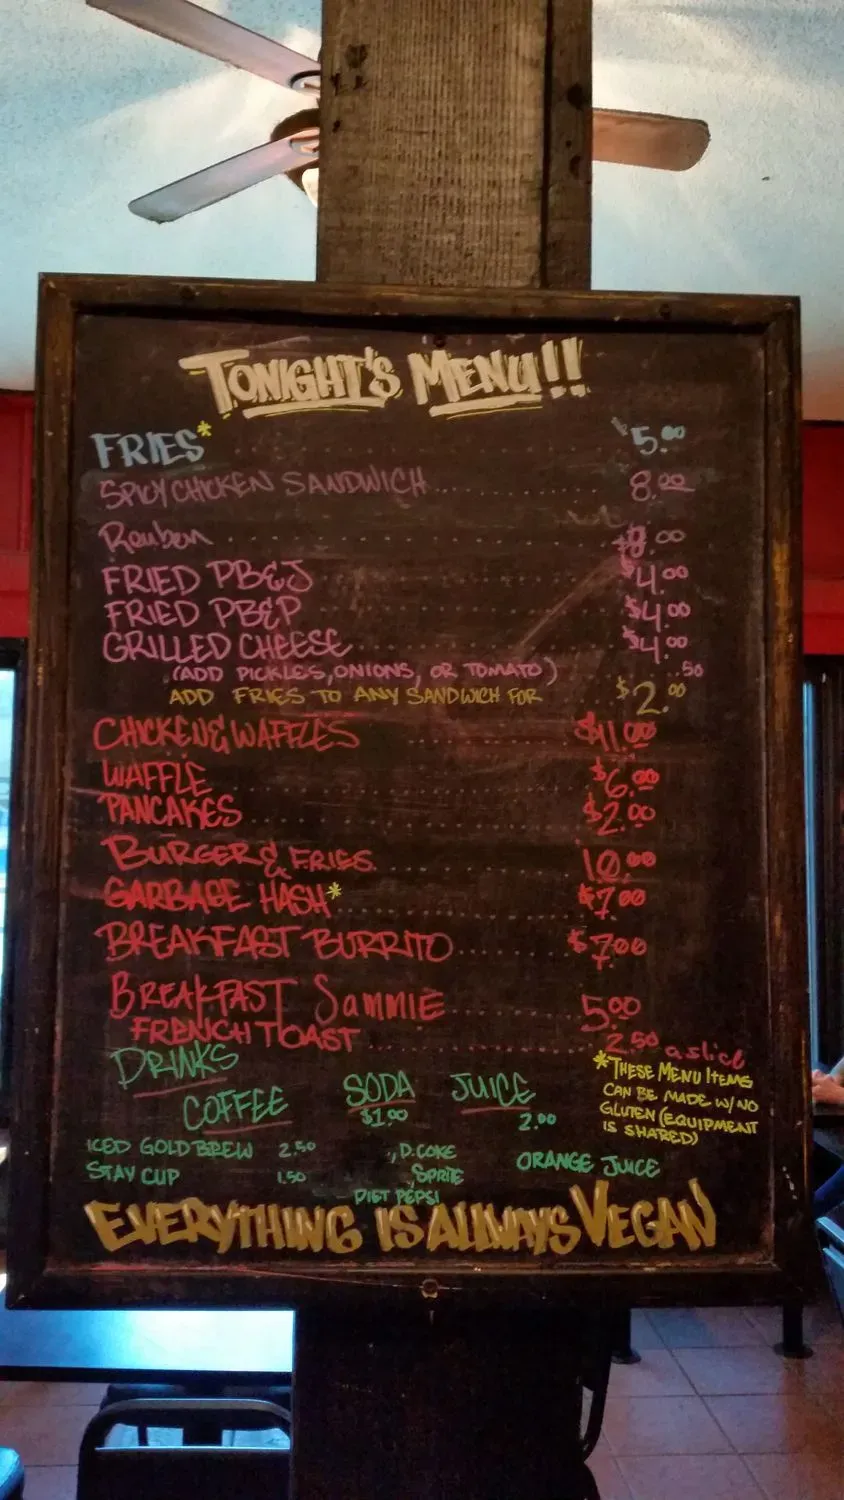 TONIGHT'S MENU!!
FRIES* $5.00
SPICY CHICKEN SANDWICH 8.00
Reuben .00
FRIED PB&J $4.00
FRIED PB&P $4.00
GRILLED CHEESE $4.00
(ADD PICKLES, ONIONS, OR TOMATO) .50
ADD FRIES TO ANY SANDWICH FOR $2.00
CHICKEN & WAFFLES $11.00
WAFFLE $6.00
PANCAKES $2.00
BURGER & FRIES 10.00
GARBAGE HASH* $7.00
BREAKFAST BURRITO $7.00
BREAKFAST Sammie 5.00
FRENCH TOAST 2.50 a slice
DRINKS
COFFEE
ICED GOLD BREW 2.50
STAY CUP 1.50
SODA
$1.00
D.COKE
SPRITE
DIET PEPSI
JUICE
2.00
ORANGE JUICE
*THESE MENU ITEMS
CAN BE MADE W/ NO
GLUTEN (EQUIPMENT
IS SHARED)
EVERYTHING IS ALWAYS VEGAN